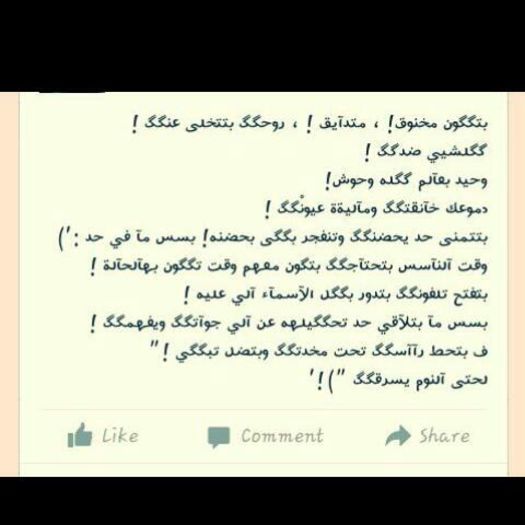 بتگگون مخنوق! ، متدآيق ! ، روحگگ بتتخلى عنگگ !
گگلشيي ضدگگ !
وحيد بعآلم گگله وحوش!
دموعك خآنقتگگ ومآليةة عيونْگگ !
بتتمنى حد يحضنگگ وتنفجر بگگى بحضنه! بسس مآ في حد :')
وقت آلنآسس بتحتآجگگ بتگون مفهم وقت تگگون بهآلحآلة !
بتفتح تلفونگگ بتدور بگگل الآسمآء آلي عليه !
بسس مآ بتلآقي حد تحگگيلهه عن آلي جوآتگگ ويفهمگگ !
ف بتحط رآآسگگ تحت مخدتگگ وبتضل تبگگي ! "
لحتى آلنوم يسرقگگ ")!'
Like Comment Share